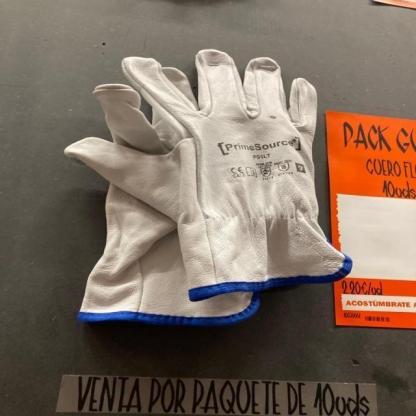 [PrimeSource]
PACK
CUERO
10uds
2.20€/ud
ACOSTÚMBRATE A
VENTA POR PAQUETE DE 10uds